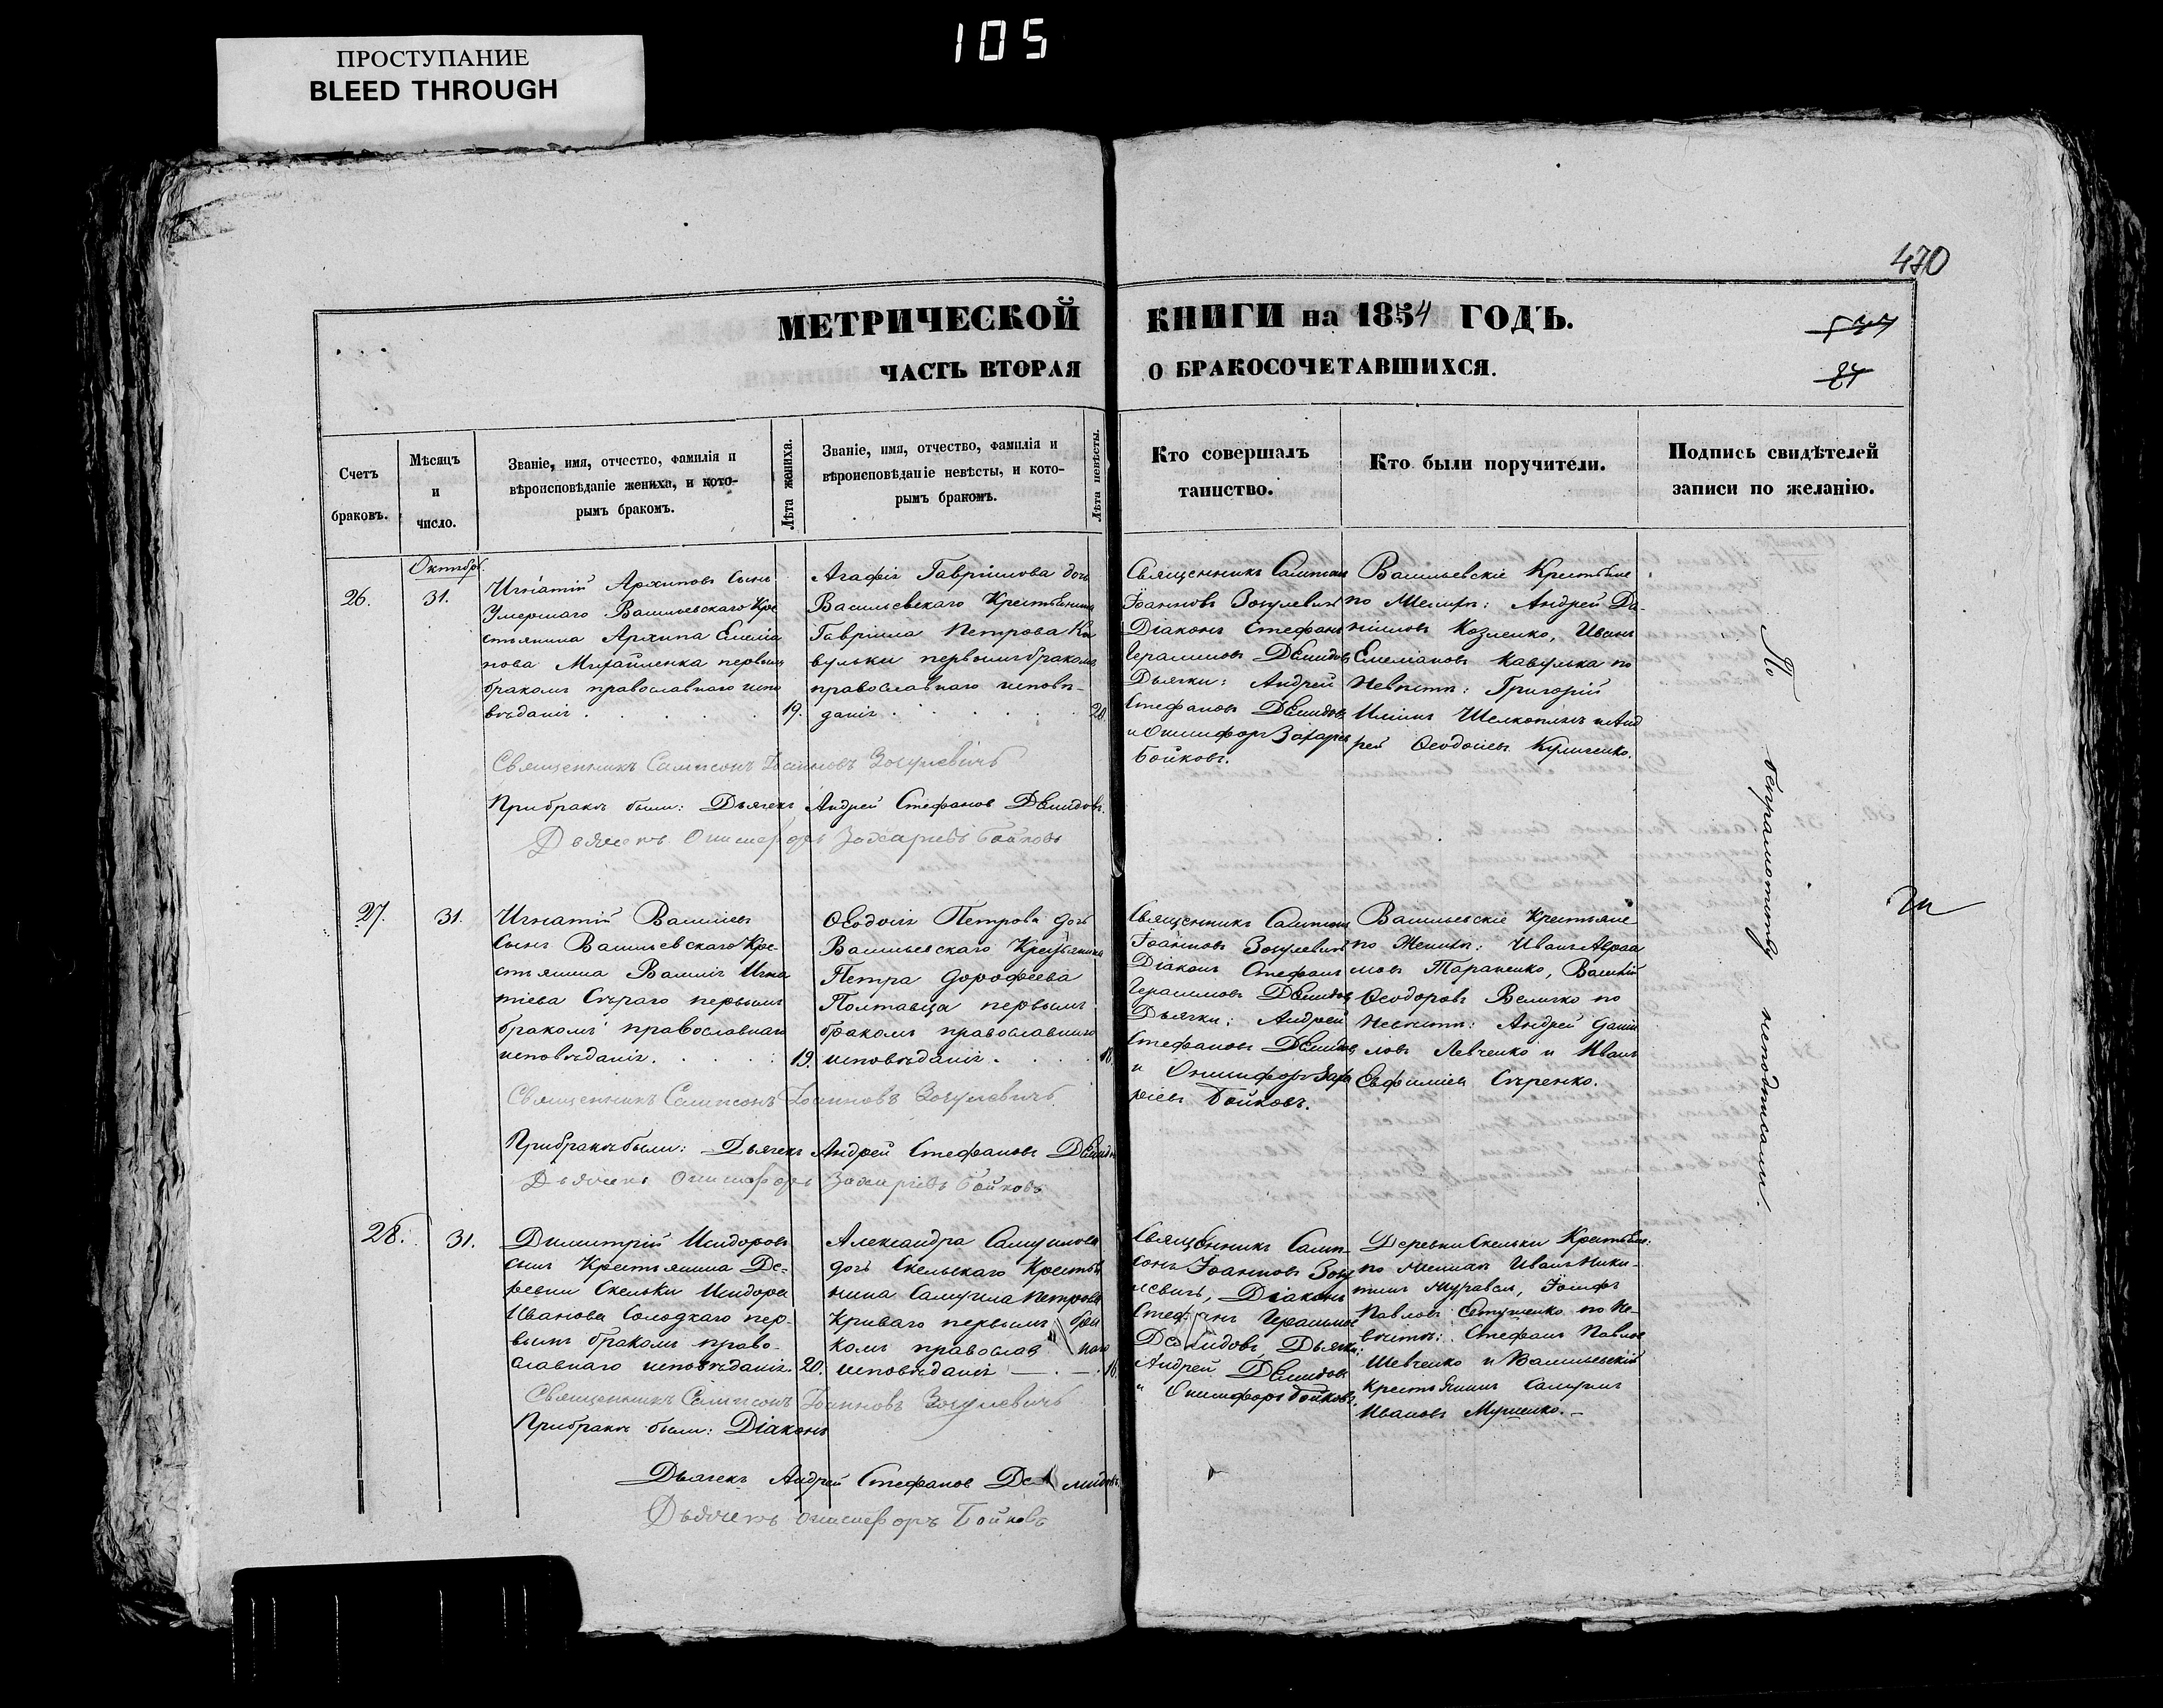 105
ПРОСТУПАНИЕ
BLEED THROUGH
470
МЕТРИЧЕСКОЙ КНИГИ на 1854 ГОДЪ.
ЧАСТЬ ВТОРАЯ О БРАКОСОЧЕТАВШИХСЯ.
Счетъ браковъ.
Мѣсяцъ и число.
Званіе, имя, отчество, фамилія и
вѣроисповѣданіе жениха, и кото-
рымъ бракомъ.
Лѣта жениха.
Званіе, имя, отчество, фамилія и
вѣроисповѣданіе невѣсты, и кото-
рымъ бракомъ.
Лѣта невѣсты.
Кто совершалъ
таинство.
Кто были поручители.
Подпись свидѣтелей
записи по желанію.
Октябр.
26.
31.
Игнатій Архиповъ Сынъ
Умершаго Васильевскаго Кре
стьянина Архипа Емелія
нова Михайленка первымъ
бракомъ православнаго испо
вѣданія
19.
Агафія Гавріилова дочь
Васильевскаго Крестьянина
Гавріила Петрова Ка
вульки первымъ бракомъ
православнаго исповѣ-
данія
20
Священникъ Сампсонъ
Іоанновъ Зогулевичъ
Діаконъ Стефанъ
Герасимовъ Демидовъ
Дьячки: Андрей
Стефановъ Демидовъ
и Онисифоръ Захарьевъ
Бойковъ.
Васильевскіе Крестьяне
по Женихѣ: Андрей Да-
ніиловъ Козленко, Иванъ
Емеліановъ Кавулька по
Невѣстѣ: Григорій
Ильинъ Шелкоплясъ и Анд
рей Ѳеодосіевъ Куличенко.
Священникъ Сампсонъ Іоанновъ Зогулевичъ
При бракѣ были: Дьячекъ Андрей Стефановъ Демидовъ.
Дьячекъ Онисифоръ Захаріевъ Бойковъ
27.
31.
Игнатій Васильевъ
Сынъ Васильевскаго Кре-
стьянина Василія Игна
тіева Сѣраго первымъ
бракомъ православнаго
исповѣданія.
19.
Ѳеодосія Петрова дочь
Васильевскаго Крестьянина
Петра Дорофеева
Полтавца первымъ
бракомъ православнаго
исповѣданія.
18.
Священникъ Сампсонъ
Іоанновъ Зогулевичъ
Діаконъ Стефанъ
Герасимовъ Демидовъ
Дьячки: Андрей
Стефановъ Демидовъ
и Онисифоръ Заха
ріевъ Бойковъ.
Васильевскіе Крестьяне
по Женихѣ: Иванъ Авраа
мовъ Тараненко, Василій
Ѳеодоровъ Величко по
Невѣстѣ: Андрей Даніи
ловъ Левченко и Иванъ
Евфиміевъ Сѣренко.
Священникъ Сампсонъ Іоанновъ Зогулевичъ
При бракѣ были: Дьячекъ Андрей Стефановъ Демидовъ
Дьячекъ Онисифоръ Захаріевъ Бойковъ
28.
31.
Димитрій Исидоровъ
сынъ Крестьянина Де-
ревни Скельки Исидора
Иванова Солодкаго пер-
вымъ бракомъ право-
славнаго исповѣданія.
20.
Александра Самуилова
дочь Скельскаго Крестья
нина Самуила Петрова
Криваго первымъ бра
комъ православ наго
исповѣданія
18.
Священникъ Самп-
сонъ Іоанновъ Зогу
левичъ, Діаконъ
Стефанъ Герасимовъ
Демидовъ, Дьячки:
Андрей Демидовъ
и Онисифоръ Бойковъ.
Деревни Скельки Крестьяне:
по женихѣ Иванъ Ники-
тинъ Журавель, Іосифъ
Павловъ по Не-
вѣстѣ: Стефанъ Павловъ
Шевченко и Васильевскій
крестьянинъ Самуилъ
Ивановъ Мущенко.
Священникъ Сампсонъ Іоанновъ Зогулевичъ
При бракѣ были: Діаконъ
Дьячекъ Андрей Стефановъ Демидовъ.
Дьячекъ Онисифоръ Бойковъ
По безграмотству неподписали.